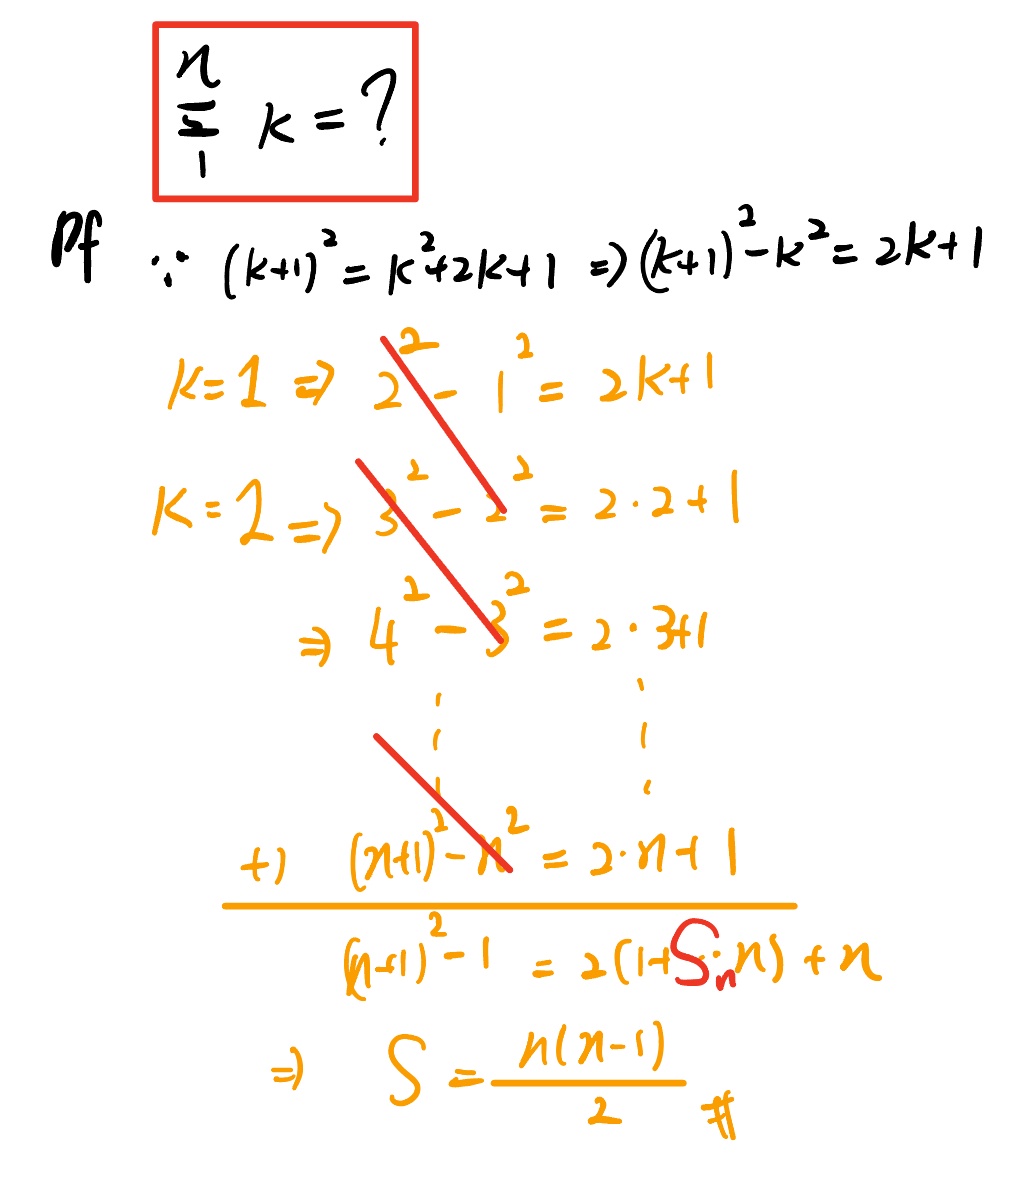 n
Σ k = ?
1
Pf ∵ (k+1)² = k²+2k+1 ⇒ (k+1)² - k² = 2k+1
k=1 ⇒ 2² - 1² = 2k+1
k=2 ⇒ 3² - 2² = 2·2+1
⇒ 4² - 3² = 2·3+1
⋮ ⋮
+) (n+1)² - n² = 2·n+1
(n+1)² - 1 = 2(1+ Sₙ n) + n
⇒ S = n(n-1)/2 #